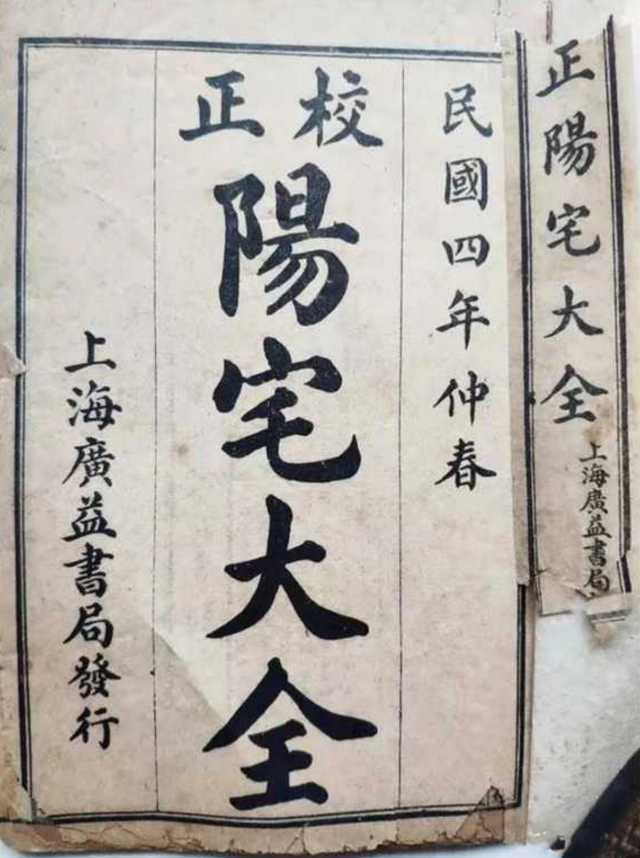 正陽宅大全
上海廣益書局
民國四年仲春
校正
陽宅大全
上海廣益書局發行